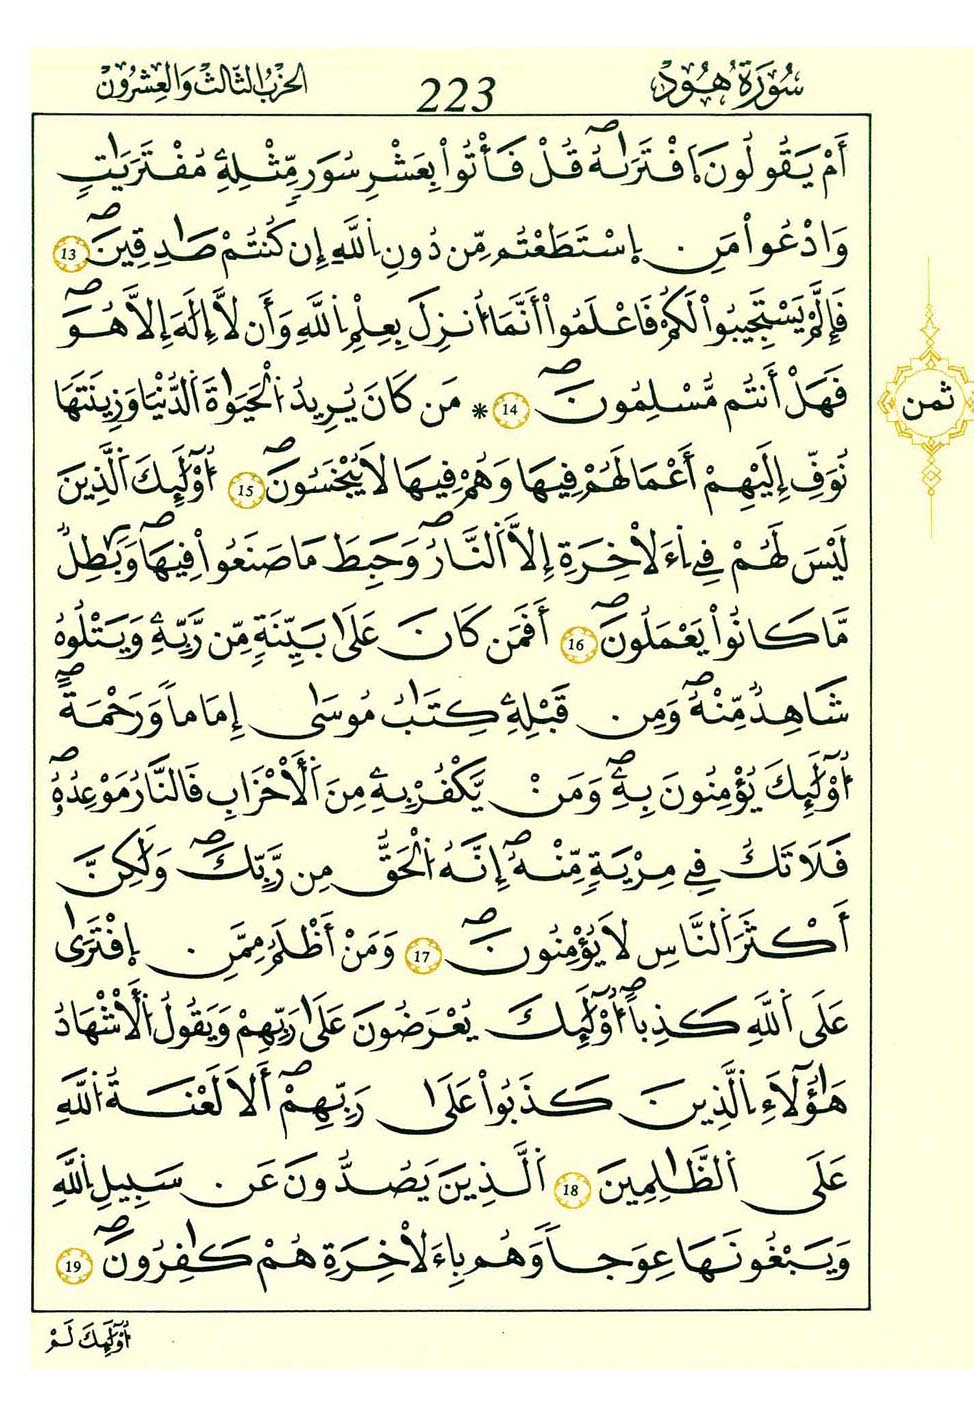 سُورَةُ هُودٍ
223
الحِزْبُ الثَّالِثُ وَالعِشْرُونَ
أَمْ يَقُولُونَ اَ۪فْتَرَىٰهُۖ قُلْ فَأْتُواْ بِعَشْرِ سُوَرٖ مِّثْلِهِۦ مُفْتَرَيَٰتٖ
وَادْعُواْ مَنِ اِ۪سْتَطَعْتُم مِّن دُونِ اِ۬للَّهِ إِن كُنتُمْ صَٰدِقِينَۖ 13
فَإِلَّمْ يَسْتَجِيبُواْ لَكُمْ فَاعْلَمُواْ أَنَّمَا أُنزِلَ بِعِلْمِ اِ۬للَّهِ وَأَن لَّا إِلَٰهَ إِلَّا هُوَۖ
فَهَلْ أَنتُم مُّسْلِمُونَۖ 14 * مَن كَانَ يُرِيدُ اُ۬لْحَيَوٰةَ اَ۬لدُّنْيَا وَزِينَتَهَا
نُوَفِّ إِلَيْهِمْ أَعْمَٰلَهُمْ فِيهَا وَهُمْ فِيهَا لَا يُبْخَسُونَۖ 15 أُوْلَٰٓئِكَ اَ۬لَّذِينَ
لَيْسَ لَهُمْ فِي اِ۬ءَلْأٓخِرَةِ إِلَّا اَ۬لنَّارُۖ وَحَبِطَ مَا صَنَعُواْ فِيهَاۖ وَبَٰطِلٞ
مَّا كَانُواْ يَعْمَلُونَۖ 16 أَفَمَن كَانَ عَلَىٰ بَيِّنَةٖ مِّن رَّبِّهِۦ وَيَتْلُوهُ
شَاهِدٞ مِّنْهُۖ وَمِن قَبْلِهِۦ كِتَٰبُ مُوسَىٰ إِمَاماٗ وَرَحْمَةًۖ
أُوْلَٰٓئِكَ يُؤْمِنُونَ بِهِۦۖ وَمَنْ يَّكْفُرْ بِهِۦ مِنَ اَ۬لْأَحْزَابِ فَالنَّارُ مَوْعِدُهُۥۖ
فَلَا تَكُ فِي مِرْيَةٖ مِّنْهُۖ إِنَّهُ اُ۬لْحَقُّ مِن رَّبِّكَۖ وَلَٰكِنَّ
أَكْثَرَ اَ۬لنَّاسِ لَا يُؤْمِنُونَۖ 17 وَمَنْ أَظْلَمُ مِمَّنِ اِ۪فْتَرَىٰ
عَلَى اَ۬للَّهِ كَذِباًۖ أُوْلَٰٓئِكَ يُعْرَضُونَ عَلَىٰ رَبِّهِمْ وَيَقُولُ اُ۬لْأَشْهَٰدُ
هَٰٓؤُلَآءِ اِ۬لَّذِينَ كَذَبُواْ عَلَىٰ رَبِّهِمْۖ أَلَا لَعْنَةُ اُ۬للَّهِ
عَلَى اَ۬لظَّٰلِمِينَ 18 اَ۬لَّذِينَ يَصُدُّونَ عَن سَبِيلِ اِ۬للَّهِ
وَيَبْغُونَهَا عِوَجاٗ وَهُم بِالْأٓخِرَةِ هُمْ كَٰفِرُونَۖ 19
ثمن
أُوْلَٰٓئِكَ لَمْ